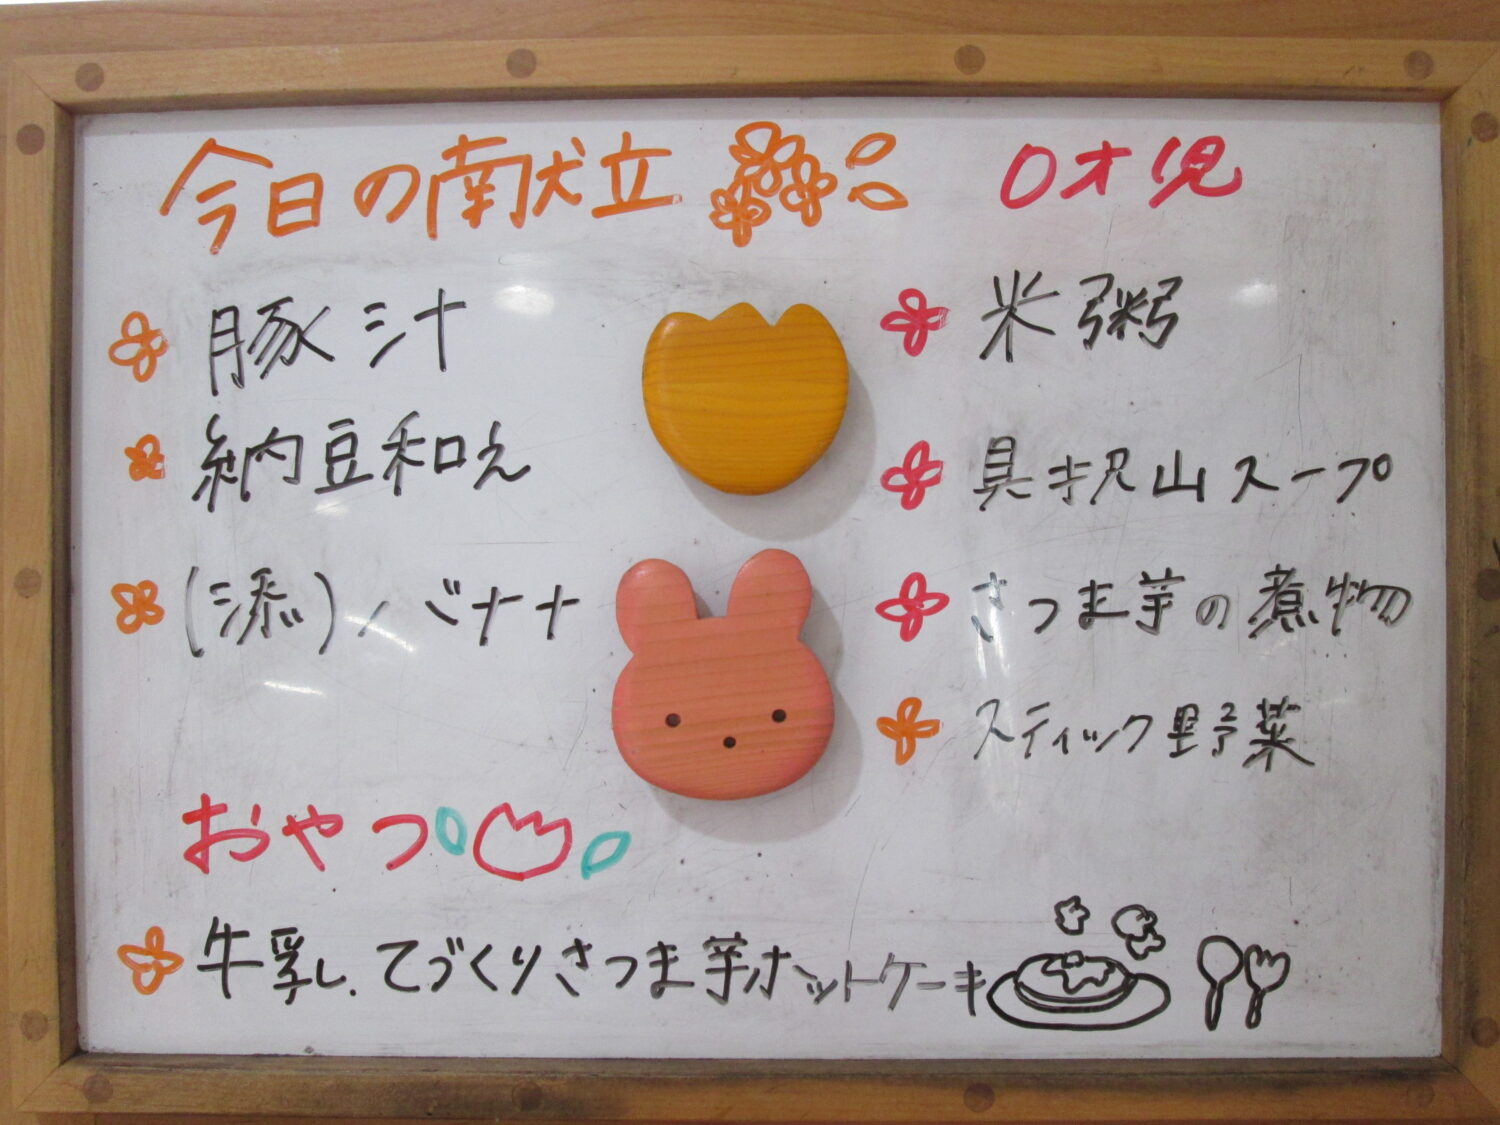 今日の献立
豚汁
納豆和え
(添)バナナ
おやつ
牛乳.てづくりさつま芋ホットケーキ
0才児
米粥
具沢山スープ
さつま芋の煮物
スティック野菜